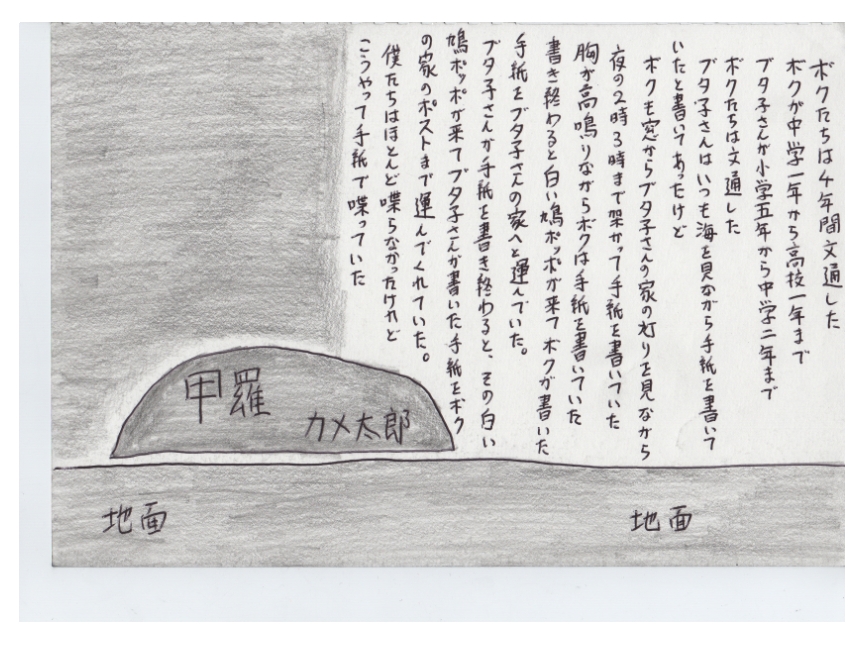 ボクたちは4年間文通した
ボクが中学一年から高校一年まで
ブタ子さんが小学五年から中学二年まで
ボクたちは文通した
ブタ子さんはいつも海を見ながら手紙を書いて
いたと書いてあったけど
ボクも窓からブタ子さんの家の灯りを見ながら
夜の2時3時まで架かって手紙を書いていた
胸が高鳴りながらボクは手紙を書いていた
書き終わると白い鳩ポッポが来てボクが書いた
手紙をブタ子さんの家へと運んでいた。
ブタ子さんが手紙を書き終わると、その白い
鳩ポッポが来てブタ子さんが書いた手紙をボク
の家のポストまで運んでくれていた。
僕たちはほとんど喋らなかったけれど
こうやって手紙で喋っていた
甲羅
カメ太郎
地面
地面